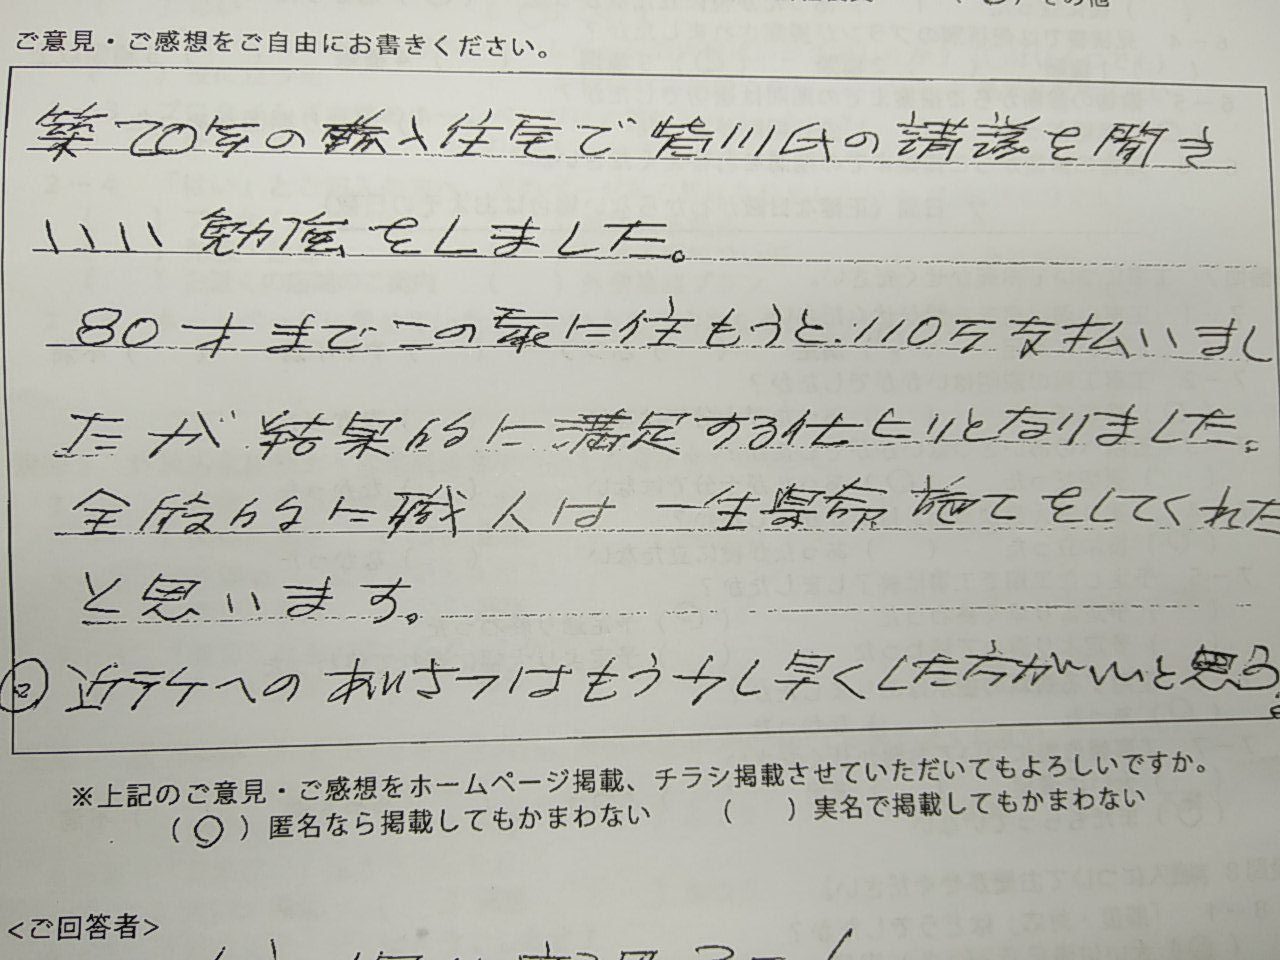 その他
ご意見・ご感想をご自由にお書きください。
築20年の積水住宅で皆川氏の講義を聞き
いい勉強をしました。
80才までこの家に住もうと110万支払いまし
たが結果的に満足する仕上りとなりました。
全般的に職人は一生懸命施工をしてくれた
と思います。
② 近ラケへのあいさつはもう少し早くした方がいいと思う。
※上記のご意見・ご感想をホームページ掲載、チラシ掲載させていただいてもよろしいですか。
（○）匿名なら掲載してもかまわない （ ）実名で掲載してもかまわない
<ご回答者>